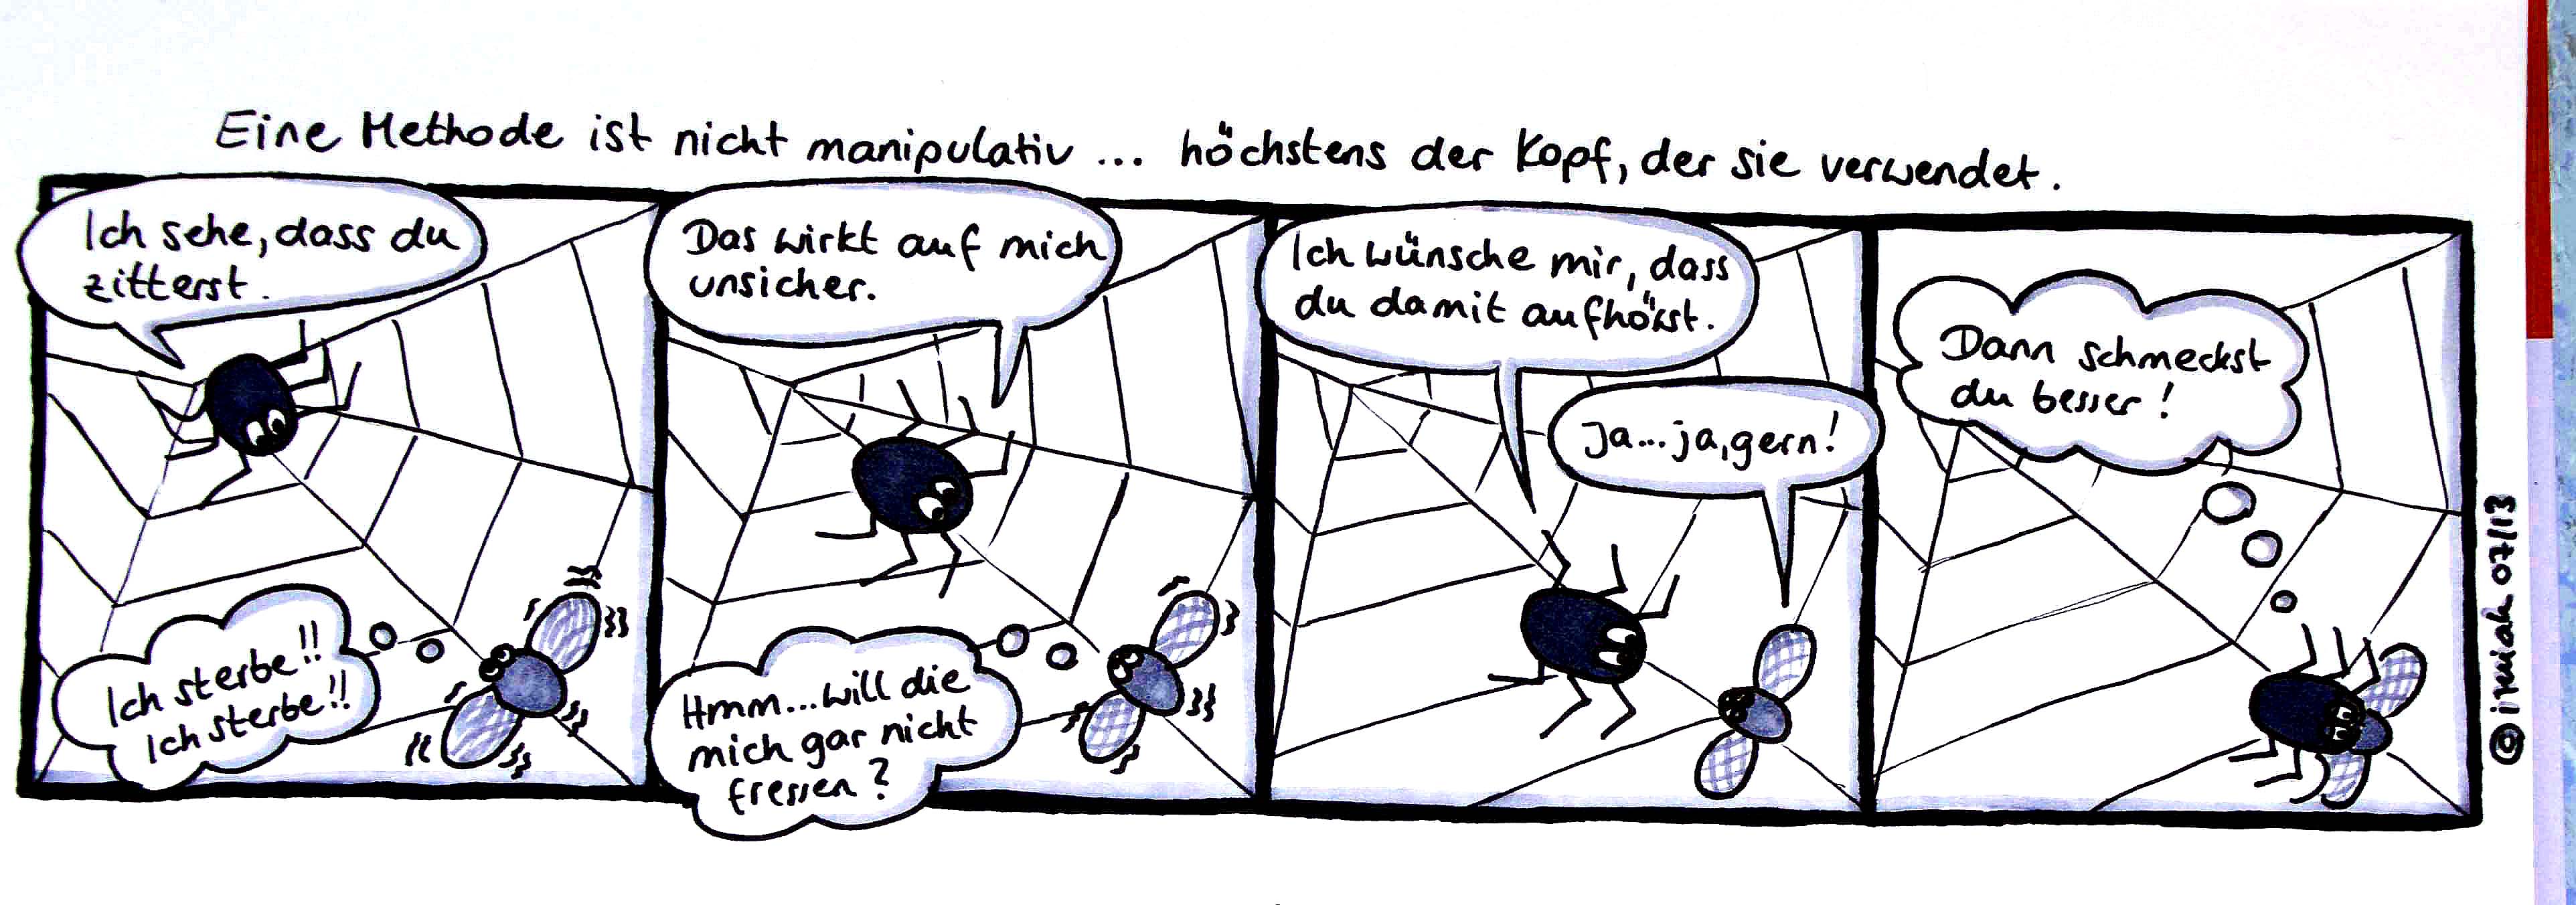 Eine Methode ist nicht manipulativ ... höchstens der Kopf, der sie verwendet.
Ich sehe, dass du
zitterst.
Ich sterbe!!
Ich sterbe!!
Das wirkt auf mich
unsicher.
Hmm...will die
mich gar nicht
fressen?
Ich wünsche mir, dass
du damit aufhörst.
Ja...ja, gern!
Dann schmeckst
du besser!